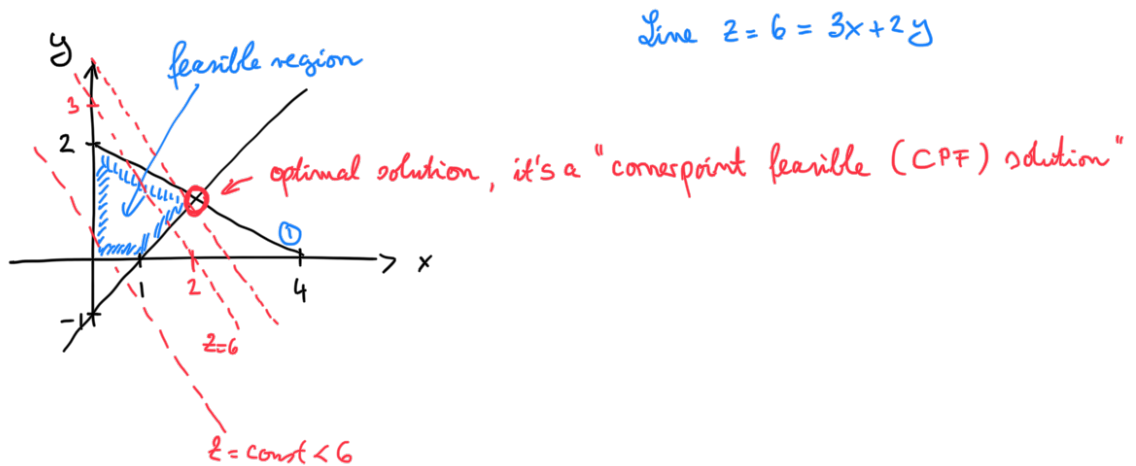 Line z = 6 = 3x + 2y
y
feasible region
3
2
optimal solution, it's a "cornerpoint feasible (CPF) solution"
①
x
1
2
4
-1
z=6
z = const < 6